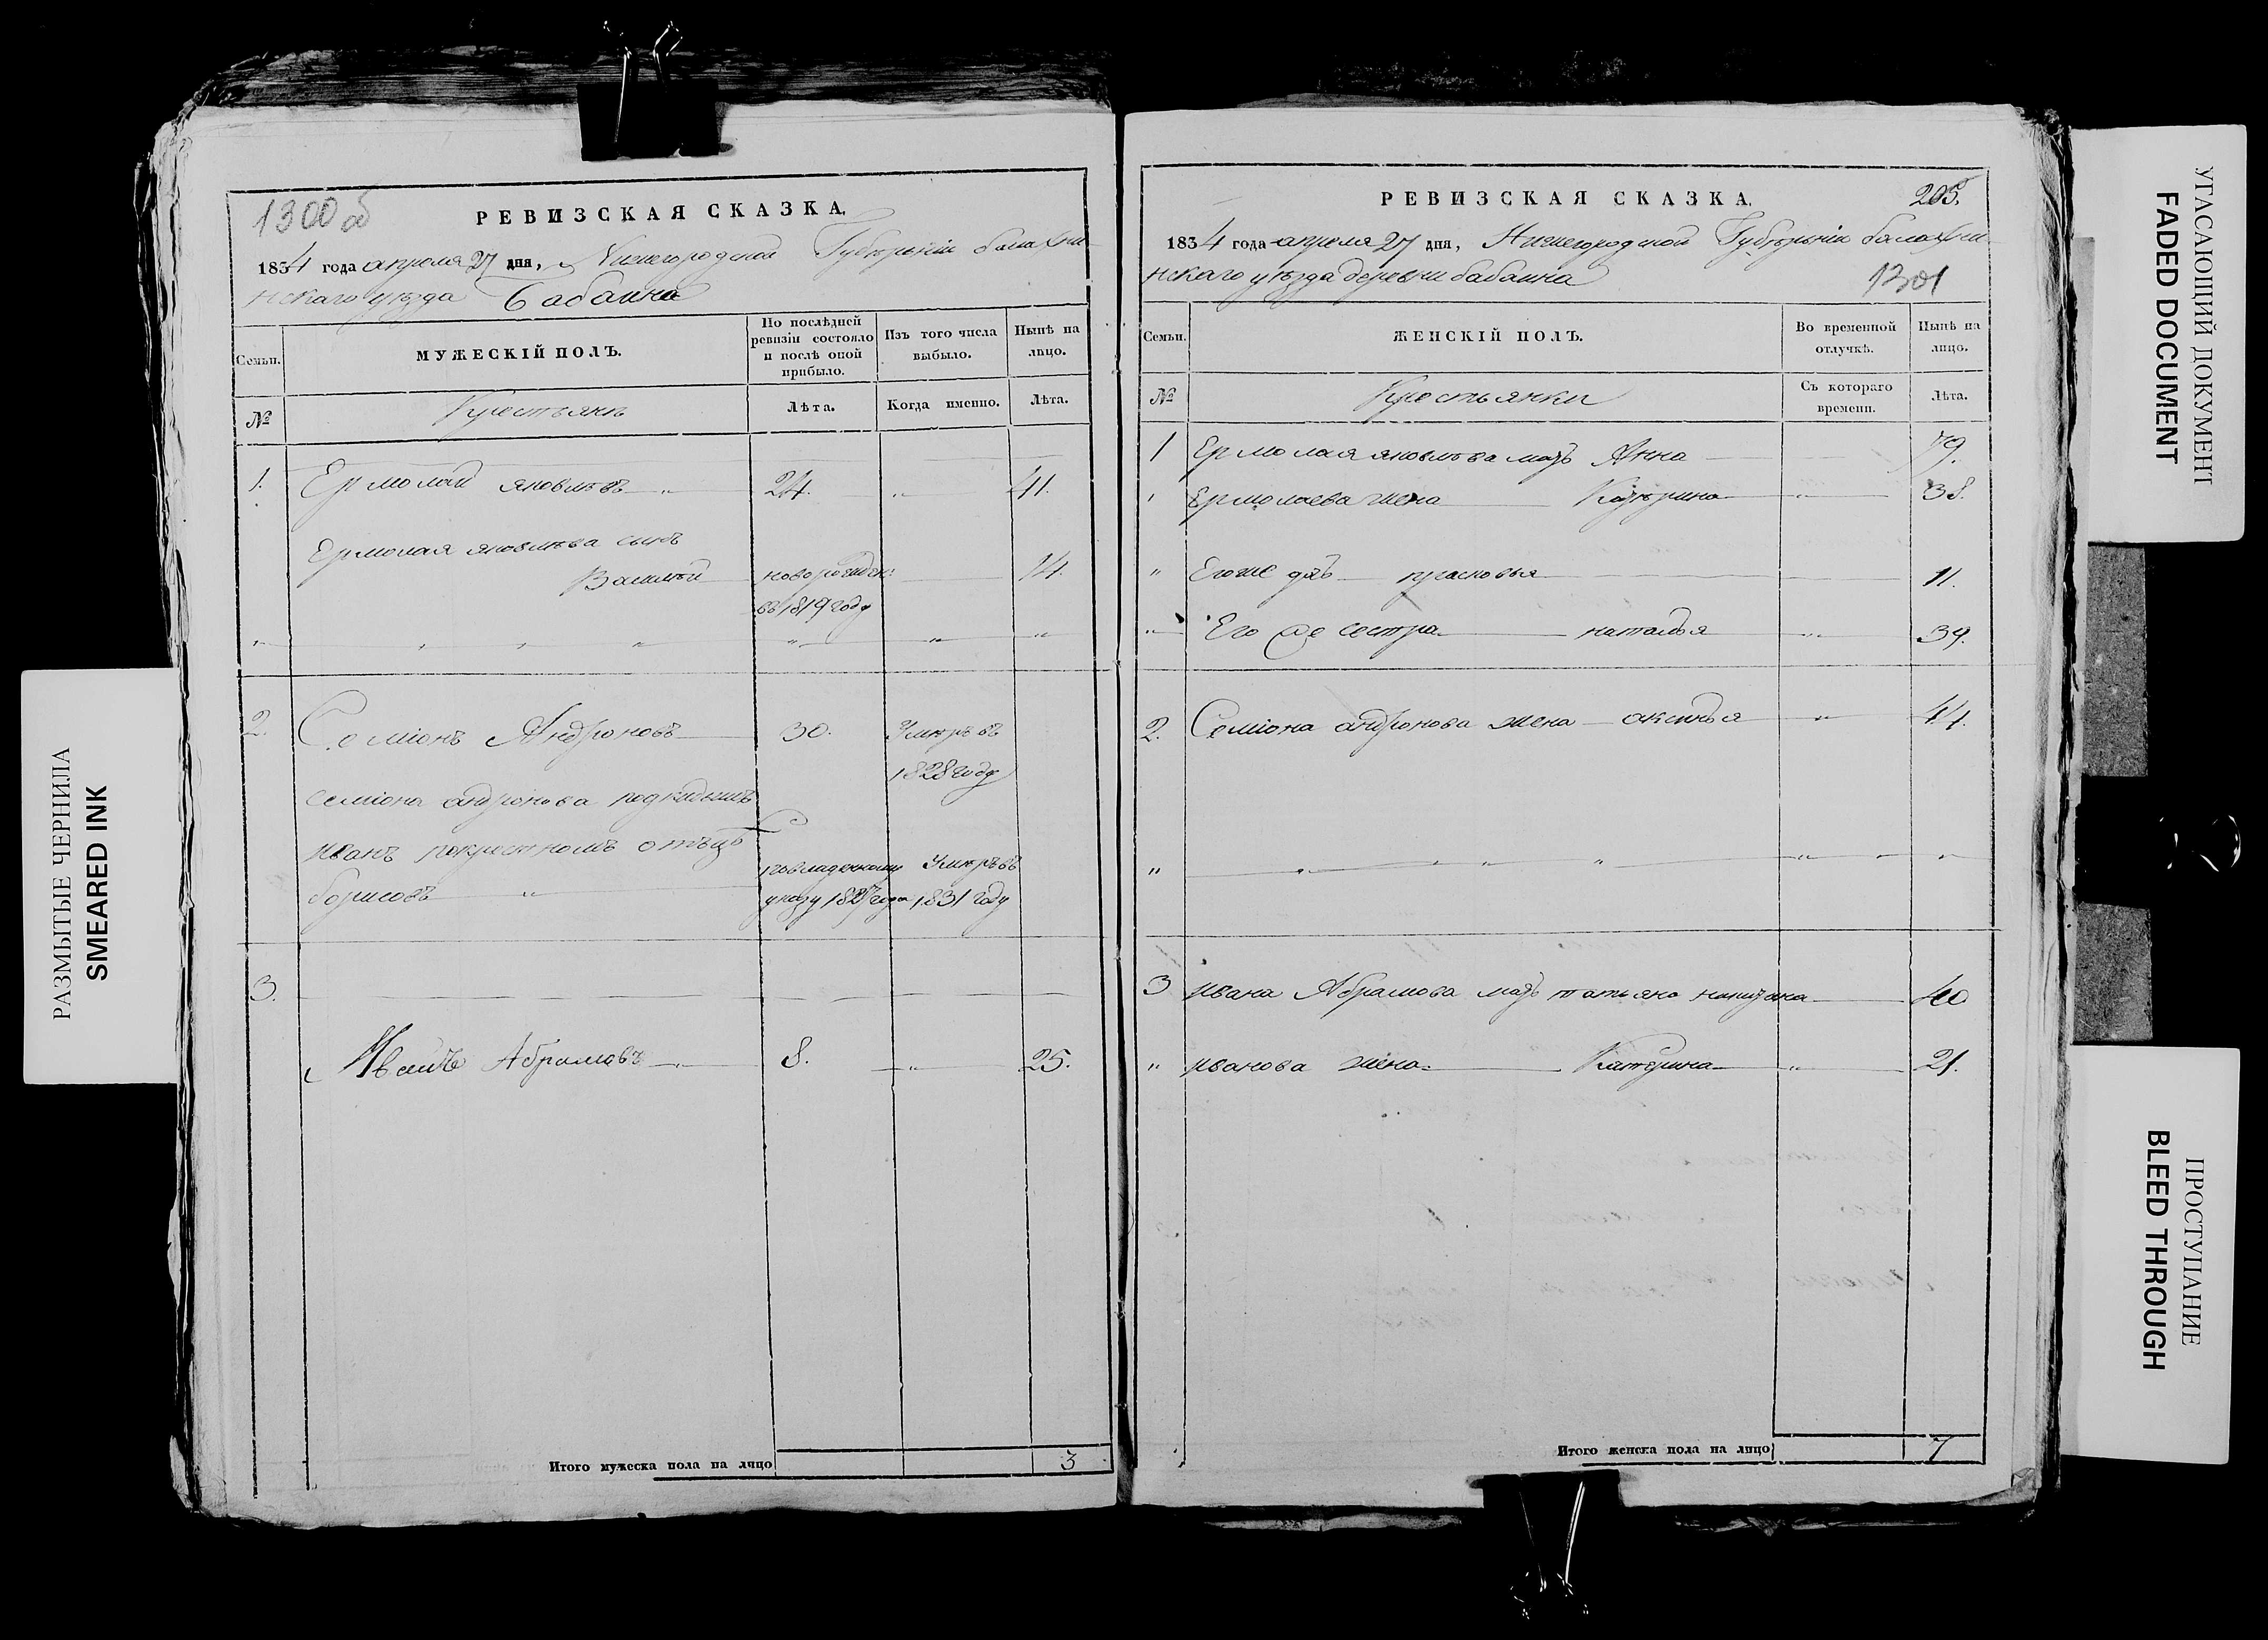 РАЗМЫТЫЕ ЧЕРНИЛА
SMEARED INK
1300 об
РЕВИЗСКАЯ СКАЗКА.
1834 года апреля 27 дня, Нижегородской Губерніи балахни-
нскаго уѣзда Бабаина
Семьи.
МУЖЕСКІЙ ПОЛЪ.
По послѣдней ревизіи состояло и послѣ оной прибыло.
Изъ того числа выбыло.
Нынѣ на лицо.
№
Крестьянѣ
Лѣта.
Когда именно.
Лѣта.
1. Ермолай яковлѣвъ 24. 41.
Ермолая яковлѣва сынъ
Василѣй новорожден: 14.
въ 1819 году
2. Семіонъ Андроновъ 30. Умеръ въ
1828 году
семіона андронова подкидышъ
иванъ покрестномъ отъцѣ
указу 1827 года Умеръ въ
борисовъ 1831 году
3.
Иванъ Абрамовъ 8. 25.
Итого мужеска пола на лицо 3
РЕВИЗСКАЯ СКАЗКА.
205.
1834 года апреля 27 дня, Нижегородской Губерніи балахни
нскаго уѣзда деревни бабаина
1301
Семьи.
ЖЕНСКІЙ ПОЛЪ.
Во временной отлучкѣ.
Нынѣ на лицо.
№
Крестьянки
Съ котораго времени.
Лѣта.
1 Ермолая яковлѣва мать Анна 79.
Ермолаева жена Катерина 38.
" Егоже дочь прасковья 11.
" Его же сестра наталья 39.
2. Семіона андронова жена аксинья 44.
3 ивана Абрамова мать татьяна никитина 40
" иванова жена Катерина 21.
Итого женска пола на лицо 7
УГАСАЮЩИЙ ДОКУМЕНТ
FADED DOCUMENT
ПРОСТУПАНИЕ
BLEED THROUGH